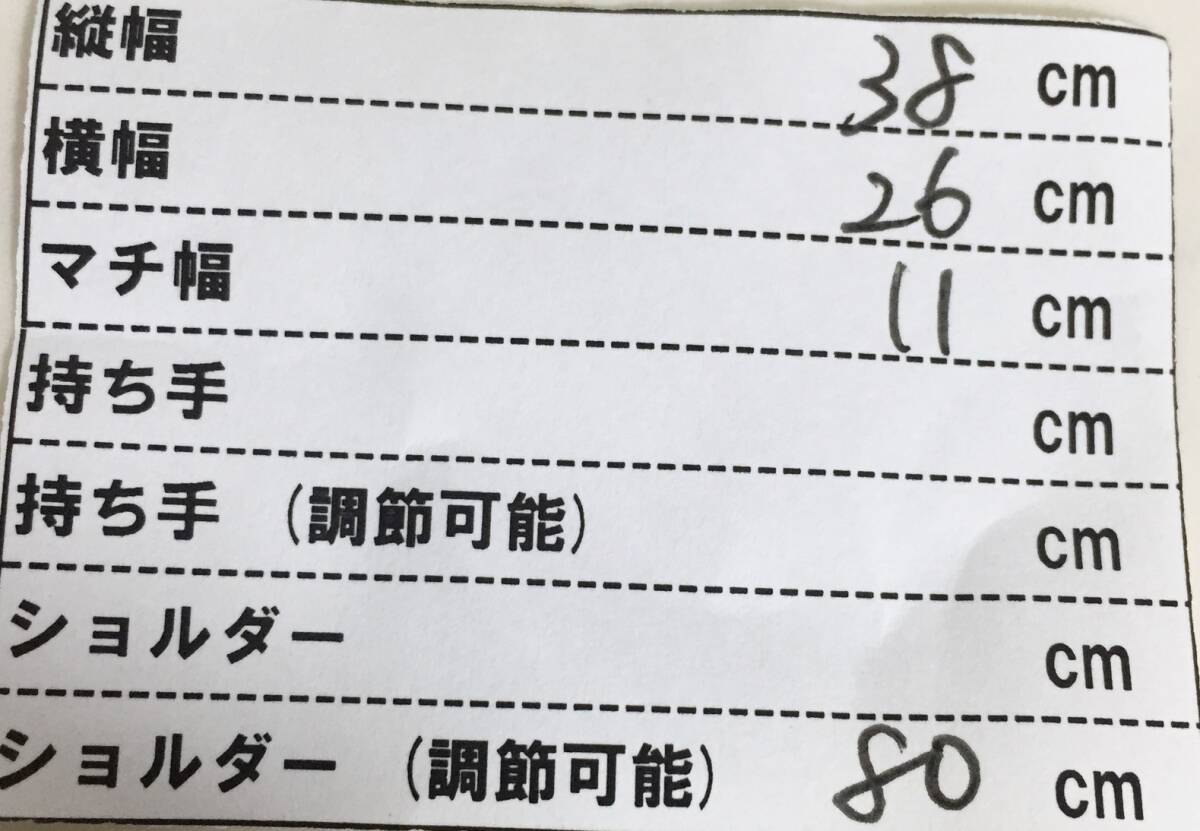 縦幅 38 cm
横幅 26 cm
マチ幅 11 cm
持ち手 cm
持ち手 (調節可能) cm
ショルダー cm
ショルダー (調節可能) 80 cm